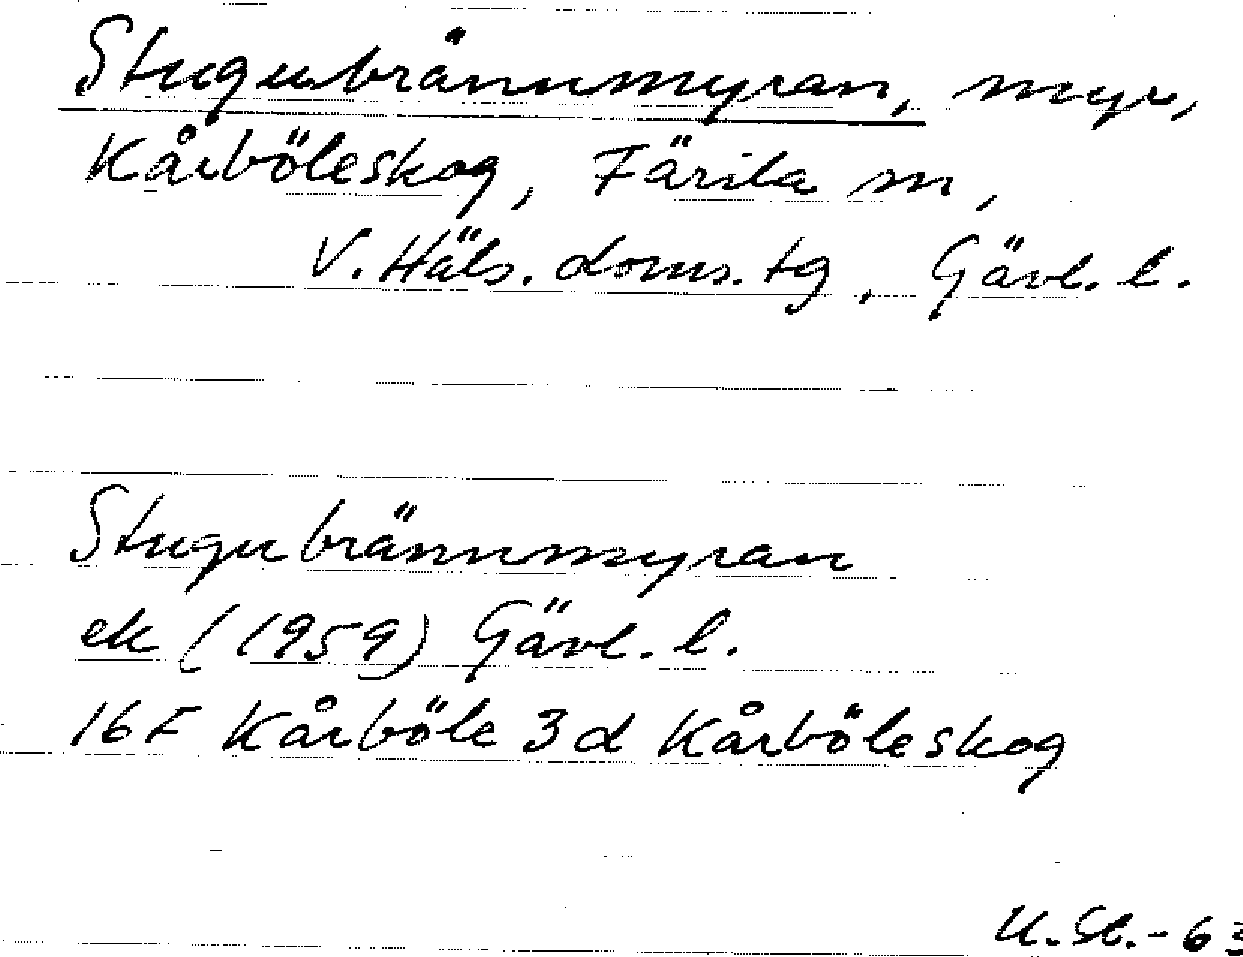 Stugubrännmyran, myr,
Kårböleskog, Färila sn,
V. Häls. doms. tg, Gävl. l.
Stugubrännmyran
ek (1959) Gävl. l.
16F Kårböle 3d Kårböleskog
U. St. - 63